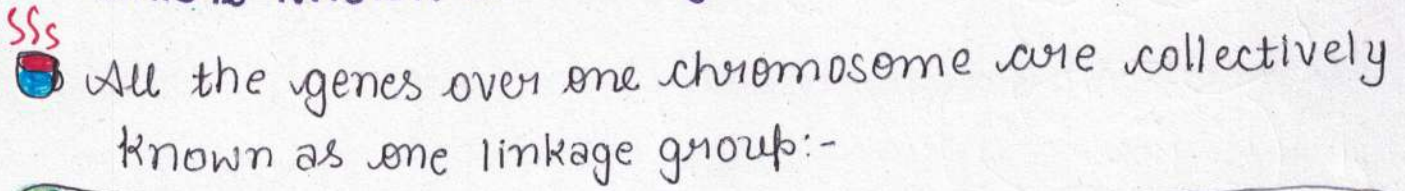 SSS
All the genes over one chromosome are collectively
known as one linkage group:-